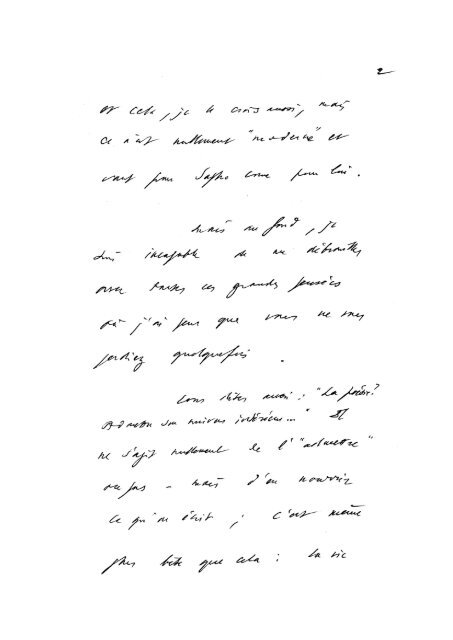 2
et cela, je le crois aussi, mais
ce n'est nullement "moderne" et
vaut pour Sapho comme pour lui.
Mais au fond, je
suis incapable de me débrouiller
avec toutes ces grandes pensées
où j'ai peur que vous ne vous
perdiez quelquefois.
Vous dites aussi : "La poésie?
Admettons son univers intérieur..." Il
ne s'agit nullement de l'"admettre"
ou pas - mais d'en nourrir
ce qu'on écrit ; c'est même
plus bête que cela : la vie